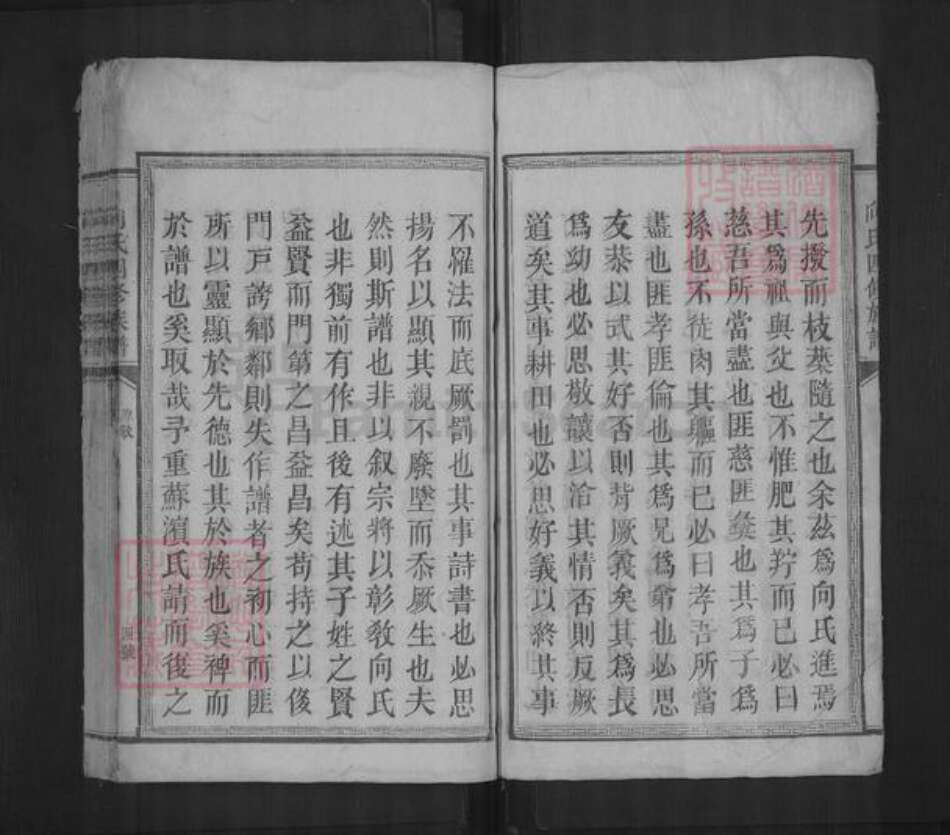 先撥而枝葉隨之也余茲爲向氏進焉
其爲祖與父也不惟肥其羜而已必曰
慈吾所當盡也匪慈匪彜也其爲子爲
孫也不徒肉其軀而已必曰孝吾所當
盡也匪孝匪倫也其爲兄爲弟也必思
友恭以式其好否則背厥義矣其爲長
爲幼也必思敬讓以洽其情否則反厥
道矣其事耕田也必思好義以終其事
不罹法而底厥罰也其事詩書也必思
揚名以顯其親不廢墜而忝厥生也夫
然則斯譜也非以叙宗將以彰敎向氏
也非獨前有作且後有述其子姓之賢
益賢而門第之昌益昌矣苟持之以俊
門戸誇鄉鄰則失作譜者之初心而匪
所以靈顯於先德也其於族也奚裨而
於譜也奚取哉予重蘇濱氏請而後之
向氏四修族譜
向氏四修族譜